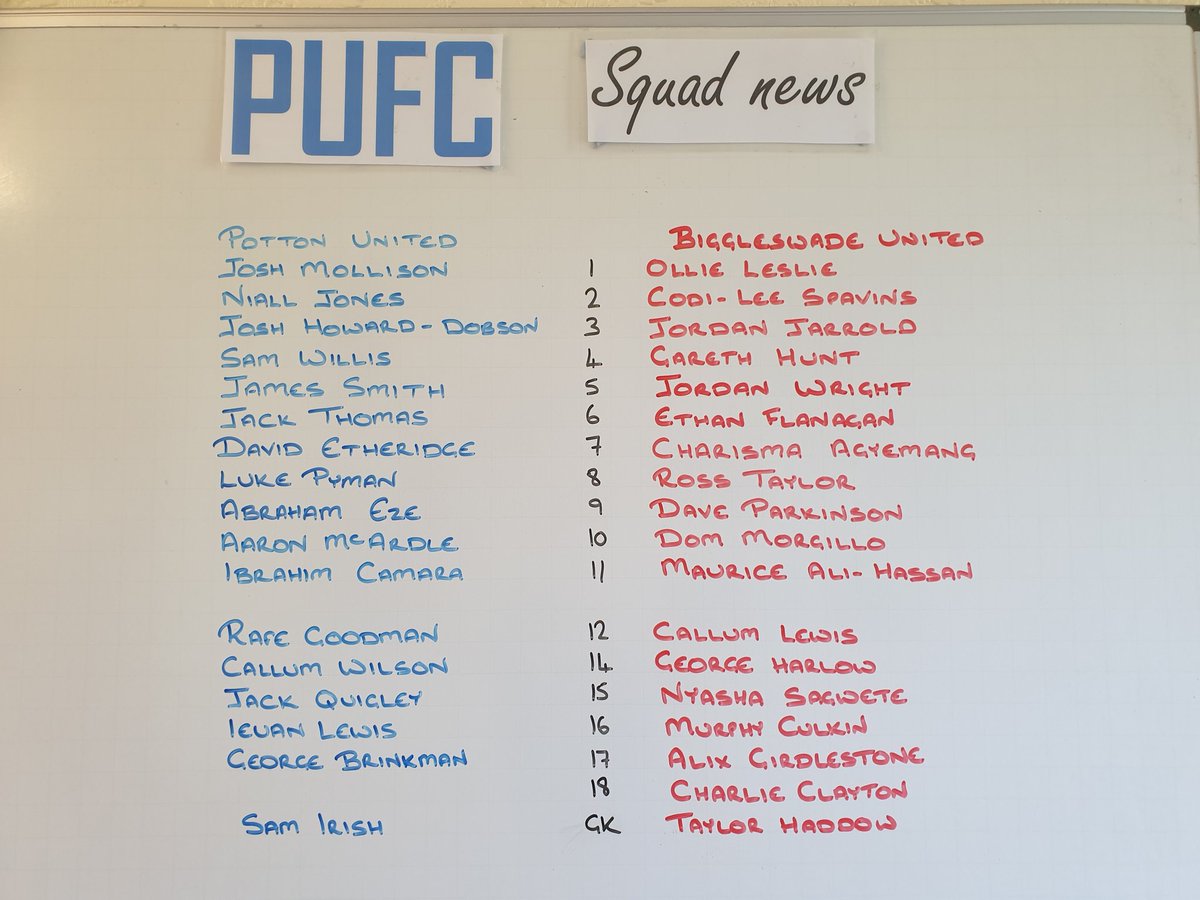 PUFC Squad news
POTTON UNITED BIGGLESWADE UNITED
JOSH MOLLISON 1 OLLIE LESLIE
NIALL JONES 2 CODI-LEE SPAVINS
JOSH HOWARD-DOBSON 3 JORDAN JARROLD
SAM WILLIS 4 GARETH HUNT
JAMES SMITH 5 JORDAN WRIGHT
JACK THOMAS 6 ETHAN FLANAGAN
DAVID ETHERIDGE 7 CHARISMA AGYEMANG
LUKE PYMAN 8 ROSS TAYLOR
ABRAHAM EZE 9 DAVE PARKINSON
AARON McARDLE 10 DOM MORGILLO
IBRAHIM CAMARA 11 MAURICE ALI-HASSAN
RAFE GOODMAN 12 CALLUM LEWIS
CALLUM WILSON 14 GEORGE HARLOW
JACK QUIGLEY 15 NYASHA SAGWETE
IEUAN LEWIS 16 MURPHY CULKIN
GEORGE BRINKMAN 17 ALIX GIRDLESTONE
18 CHARLIE CLAYTON
SAM IRISH GK TAYLOR HADDOW